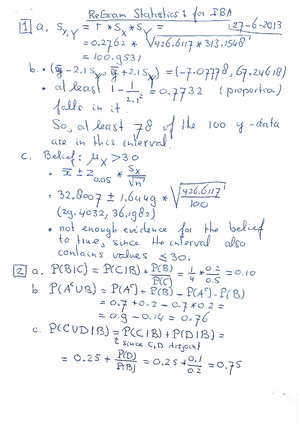 ReExam Statistics 1 for IBA
27-6-2013
1 a. S_X,Y = r * S_X * S_Y =
= 0.2762 * √426.6117 * 313.1548
= 100.9531
b. • (ȳ - 2.1 S_Y, ȳ + 2.1 S_Y) = (-7.07778, 67.24618)
• at least 1 - 1/2.1² = 0.7732 (proportion)
falls in it.
So, at least 78 of the 100 y-data
are in this interval.
c. Belief: μ_X > 30
• x̄ ± z_0.05 * S_X/√n
• 32.8007 ± 1.6449 * √426.6117/100
(29.4032, 36.1982)
• not enough evidence for the belief
to true, since the interval also
contains values ≤ 30.
2 a. P(B|C) = P(C|B) * P(B)/P(C) = 1/4 * 0.2/0.5 = 0.10
b. P(Aᶜ∪B) = P(Aᶜ) + P(B) - P(Aᶜ)·P(B)
= 0.7 + 0.2 - 0.7 * 0.2 =
= 0.9 - 0.14 = 0.76
c. P(C∪D|B) = P(C|B) + P(D|B) =
since C,D disjoint
= 0.25 + P(D)/P(B) = 0.25 + 0.1/0.2 = 0.75